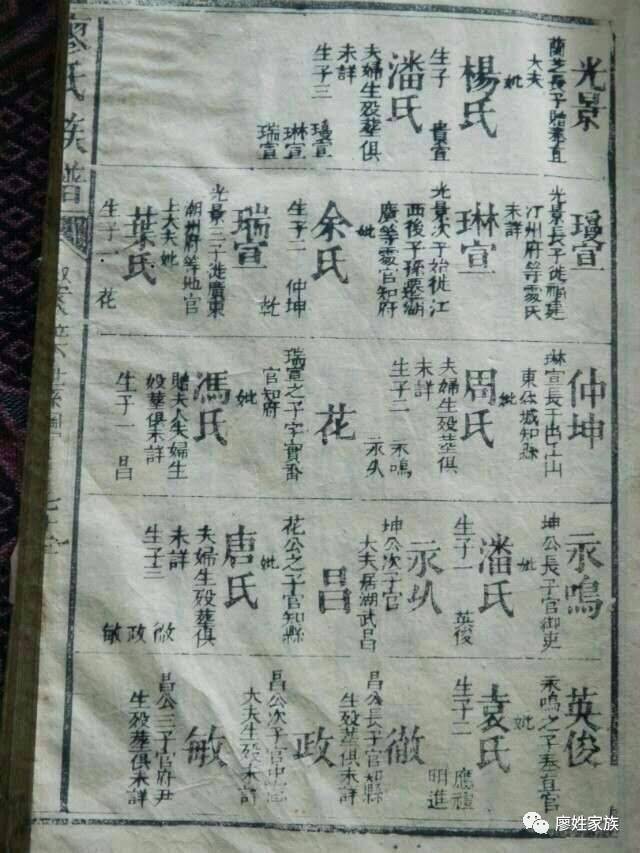 廖氏族譜
光景
蘭芝長子贈奉直
大夫
妣
楊氏
生子 貴宣
潘氏
夫婦生殁塟俱
未詳
生子三
瓊宣
琳宣
瑞宣
瓊宣
光景長子徙福建
汀州府等處氏
未詳
琳宣
光景次子始徙江
西後子孫遷湖
廣等處官知府
妣
余氏
生子二 仲坤
乾
瑞宣
光景三子徙廣東
潮州府等地官
上大夫妣
葉氏
生子一 花
仲坤
琳宣長子官山
東知縣
妣
周氏
夫婦生殁塟俱
未詳
生子二 永鳴
永从
花
瑞宣之子字
官知府
妣
馮氏
贈夫人夫婦生
殁塟俱未詳
生子一 昌
永鳴
坤公長子官御吏
妣
潘氏
生子一 英俊
永从
坤公次子官
大夫居湖武昌
昌
花公之子官知縣
妣
唐氏
夫婦生殁塟俱
未詳
生子三 徹
政
敏
英俊
永鳴之子奉直官
妣
袁氏
生子二 應禮
明進
徹
昌公長子官知縣
生殁塟俱未詳
政
昌公次子官中憲
大夫生殁未詳
敏
昌公三子官府尹
生殁塟俱未詳
廖姓家族